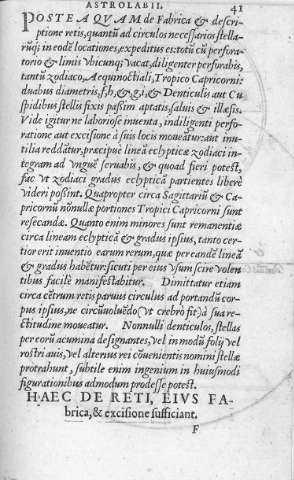 ASTROLABII. 41
POSTEAQVAM de Fabrica & descri-
ptione retis, quantũ ad circulos necessarios stella-
rũq; in eodẽ locationes, expeditus es: totũ cũ perfora-
torio & limis vbicunq; vacat, diligenter perforabis,
tantũ zodiaco, Aequinoctiali, Tropico Capricorni:
duabus diametris, f, h, & g, i, & Denticulis aut Cu
spidibus stellis fixis passim aptatis, saluis & illæsis.
Vide igitur ne laboriose inuenta, indiligenti perfo-
ratione aut excisione à suis locis moueãtur: aut inu-
tilia reddãtur, præcipuè lineã eclypticæ zodiaci in-
tegram ad vnguẽ seruabis, & quoad fieri potest,
fac vt zodiaci gradus eclypticã partientes liberè
videri possint. Quapropter circa Sagittariũ & Ca-
pricornũ nõnullæ portiones Tropici Capricorni sunt
resecandæ. Quanto enim minores sunt remanentiæ
circa lineam eclypticã & gradus ipsius, tanto cer-
tior erit inuentio earum rerum, quæ per eandẽ lineã
& gradus habẽtur: sicuti per eius vsum scire volen
tibus facile manifestabitur. Dimittatur etiam
circa cẽtrum retis paruus circulus ad portandũ cor-
pus ipsius, ne circũuoluẽdo (vt crebrò fit) à sua re-
ctitudine moueatur. Nonnulli denticulos, stellas
per eorũ acumina designantes, vel in modũ folij vel
rostri auis, vel alterius rei cõuenientis nomini stellæ
protrahunt, subtile enim ingenium in huiusmodi
figurationibus admodum prodesse potest.
HAEC DE RETI, EIVS FA-
brica, & excisione sufficiant.
F